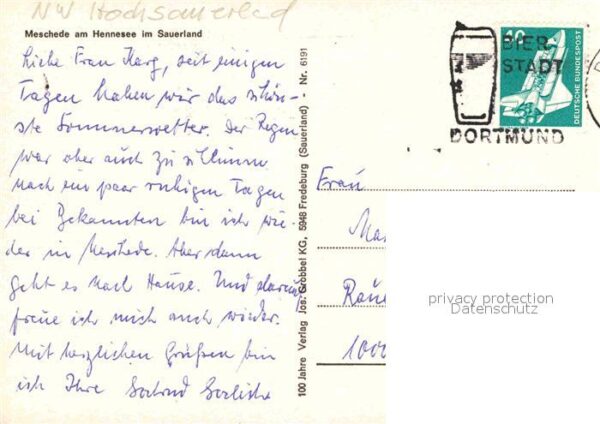 NW Hochsauerland
Meschede am Hennesee im Sauerland
Liebe Frau Karg, seit einigen
Tagen haben wir das schön-
ste Sommerwetter. Der Regen
war aber auch zu schlimm
nach ein paar ruhigen Tagen
bei Bekannten bin ich wie-
der in Meschede. Aber dann
geht es nach Hause. Und darauf
freue ich mich auch wieder.
Mit herzlichen Grüßen bin
ich Ihre
100 Jahre Verlag Jos. Grobbel KG, 5948 Fredeburg (Sauerland) - Nr. 6191
BIER-
STADT
DORTMUND
40
DEUTSCHE BUNDESPOST
Frau
privacy protection
Datenschutz
1000